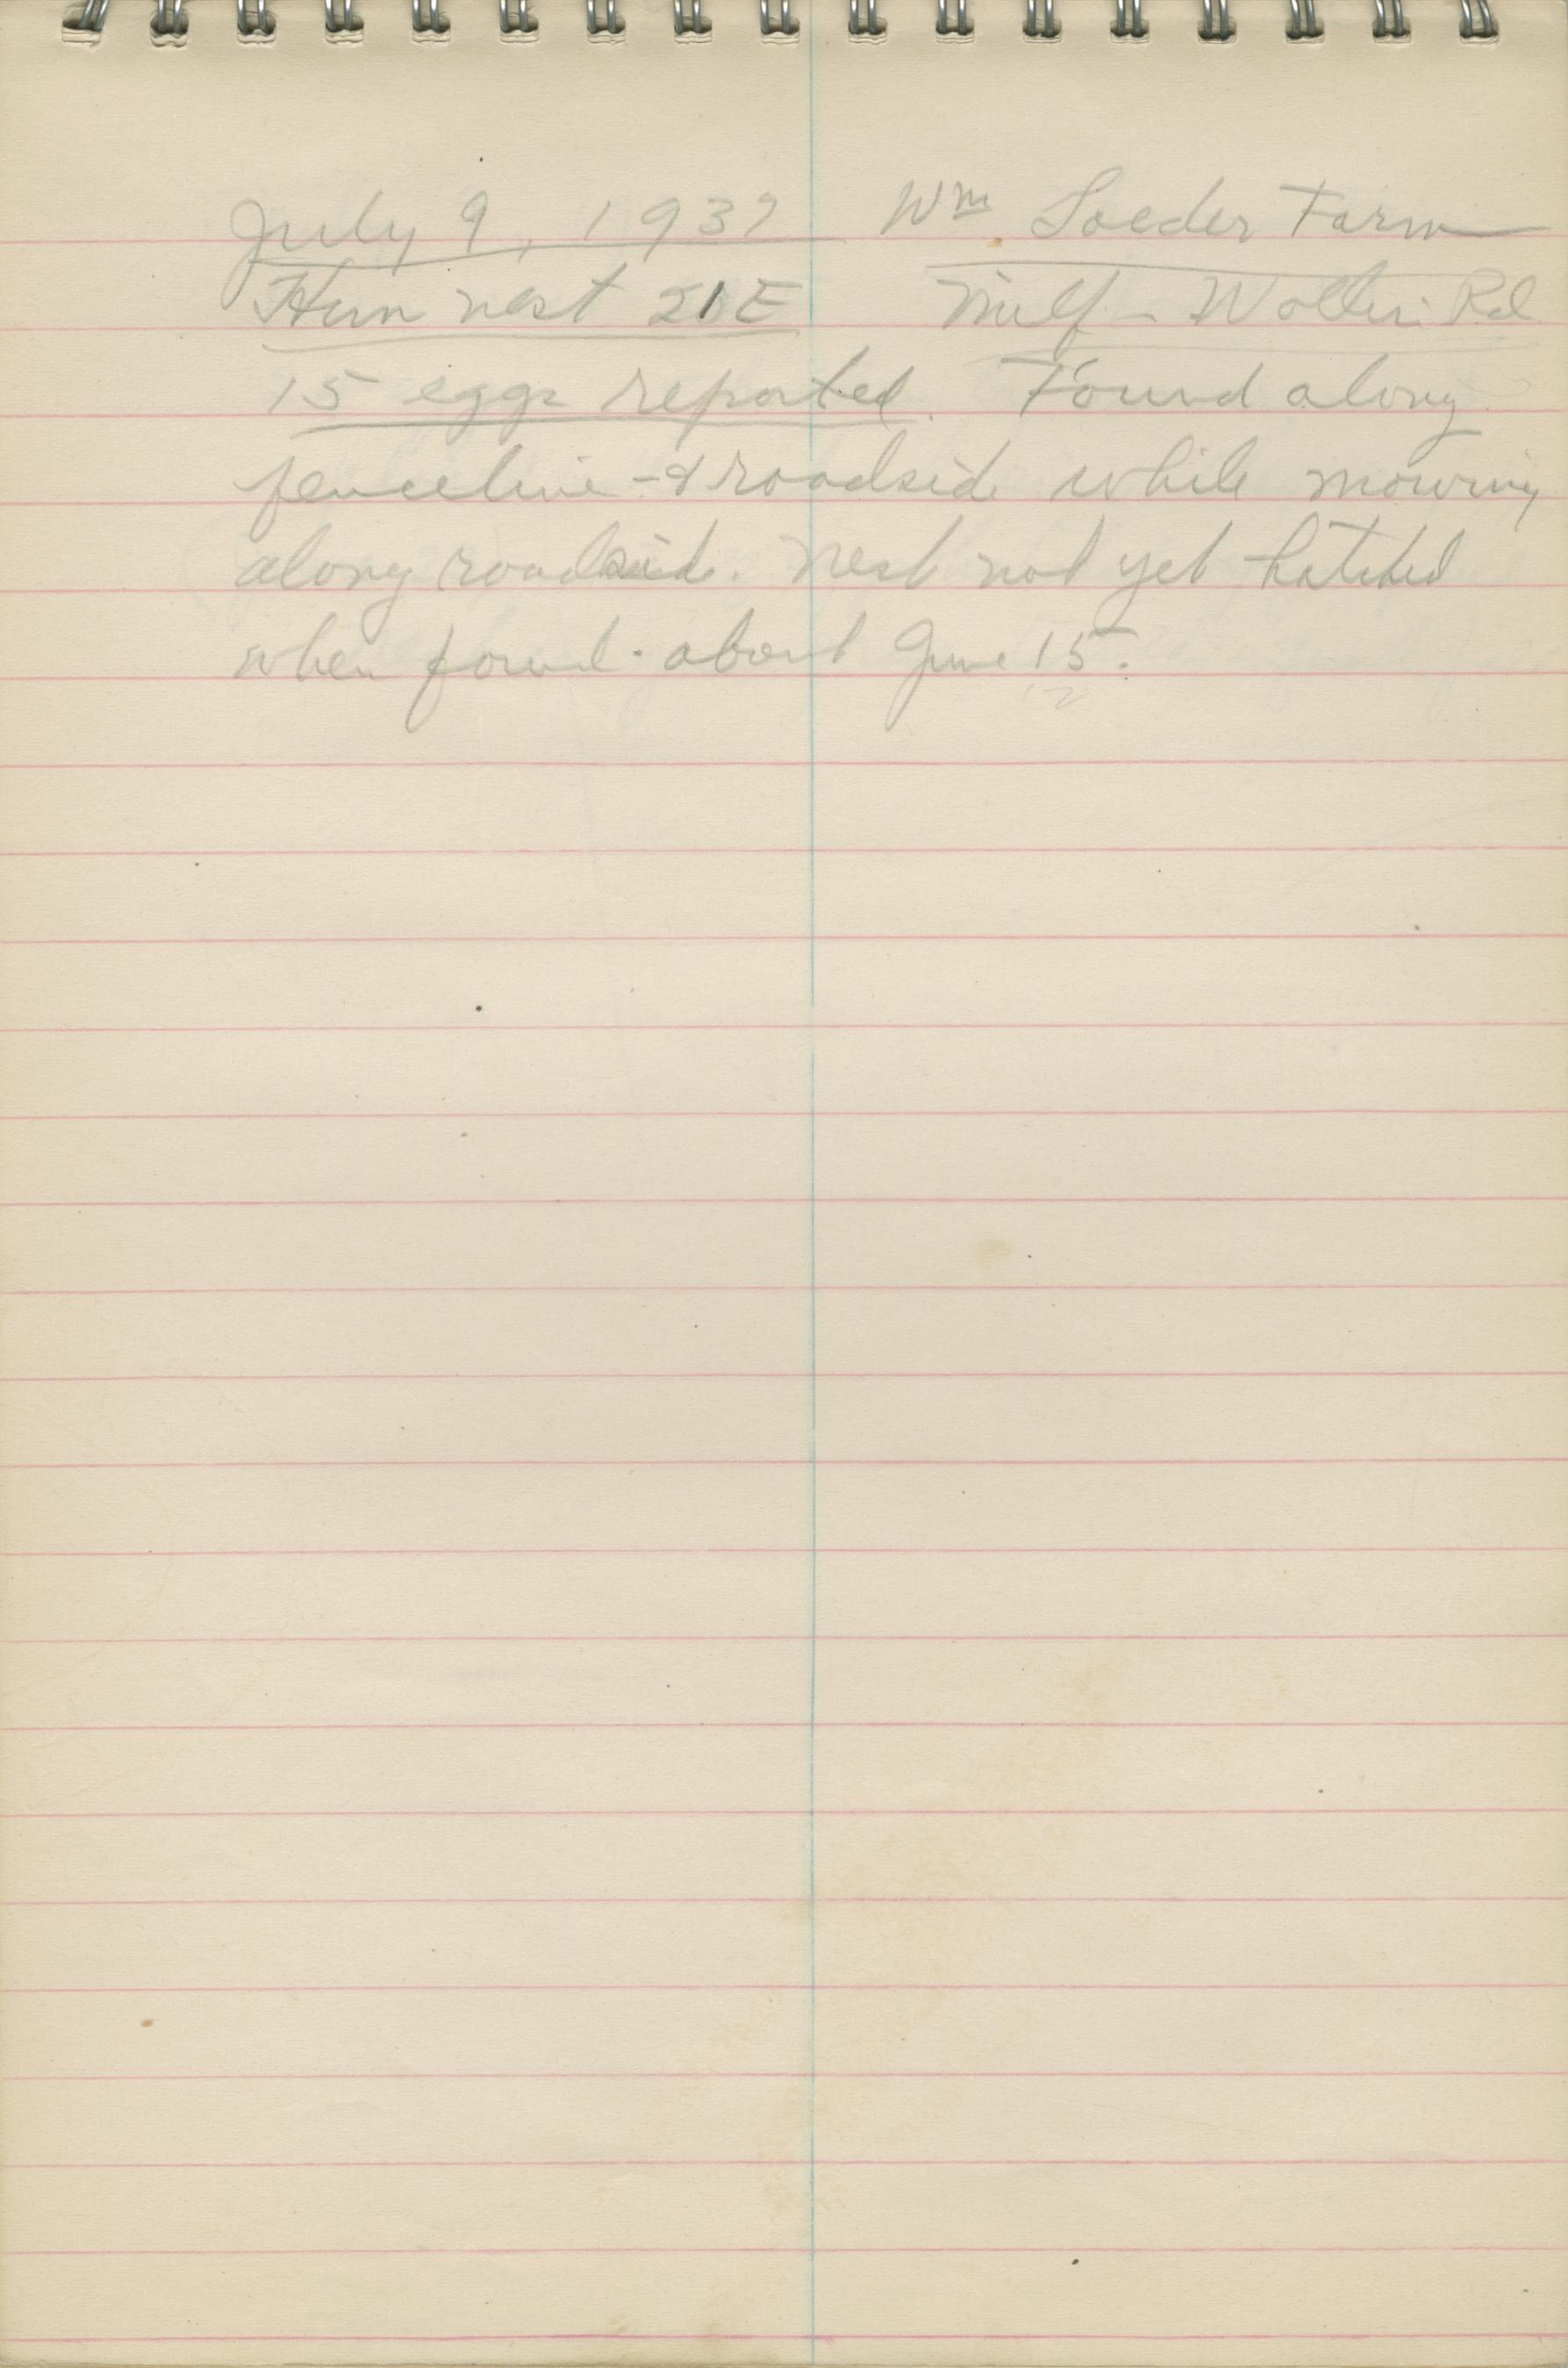 July 9, 1937 Wm. Loeder Farm
Hun nest 21E Milf - Rd
15 eggs reported. Found along
fenceline - & roadside while mowing
along roadside. Nest not yet hatched
when found - about June 15.